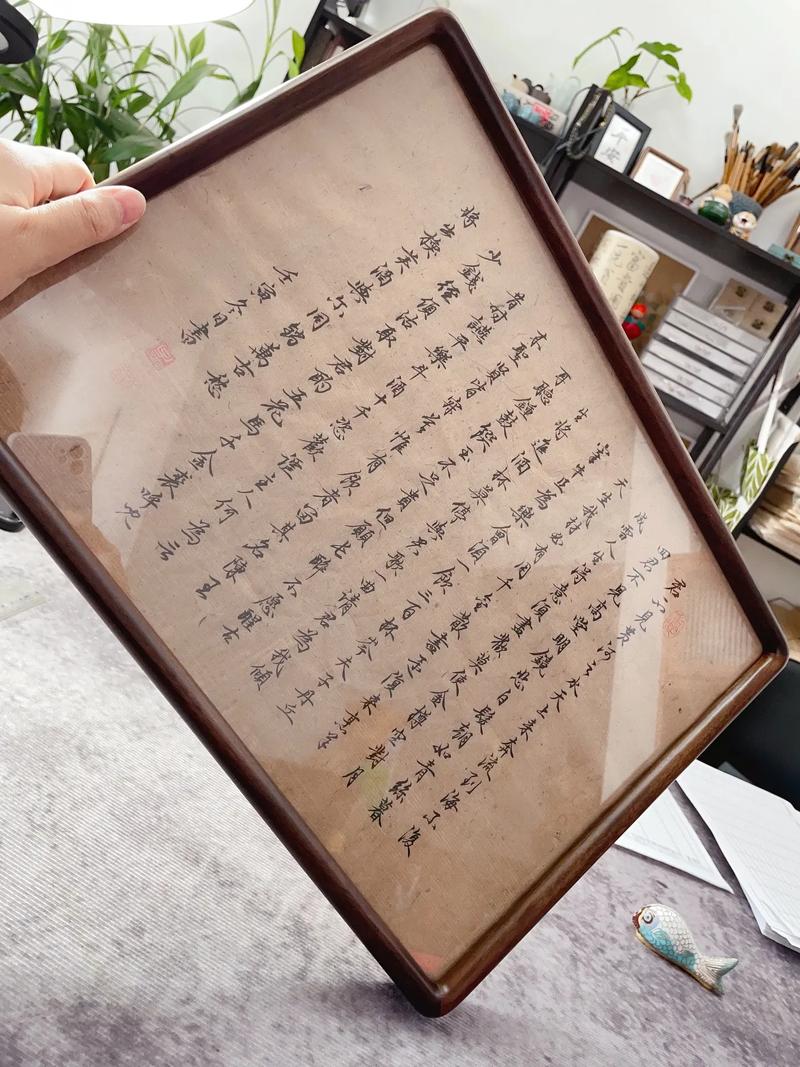 君不見黃河之水天上來奔流到海不復
回君不見高堂明鏡悲白髮朝如青絲暮
成雪人生得意須盡歡莫使金樽空對月
天生我材必有用千金散盡還復來烹羊
宰牛且為樂會須一飲三百杯岑夫子丹丘
生將進酒杯莫停與君歌一曲請君為我傾
耳聽鐘鼓饌玉不足貴但願長醉不願醒古
來聖賢皆寂寞惟有飲者留其名陳王
昔時讌平樂斗酒十千恣歡謔主人何為云
少錢徑須沽取對君酌五花馬千金裘呼兒
將出換美酒與爾同銷萬古愁
壬寅冬日書
平安